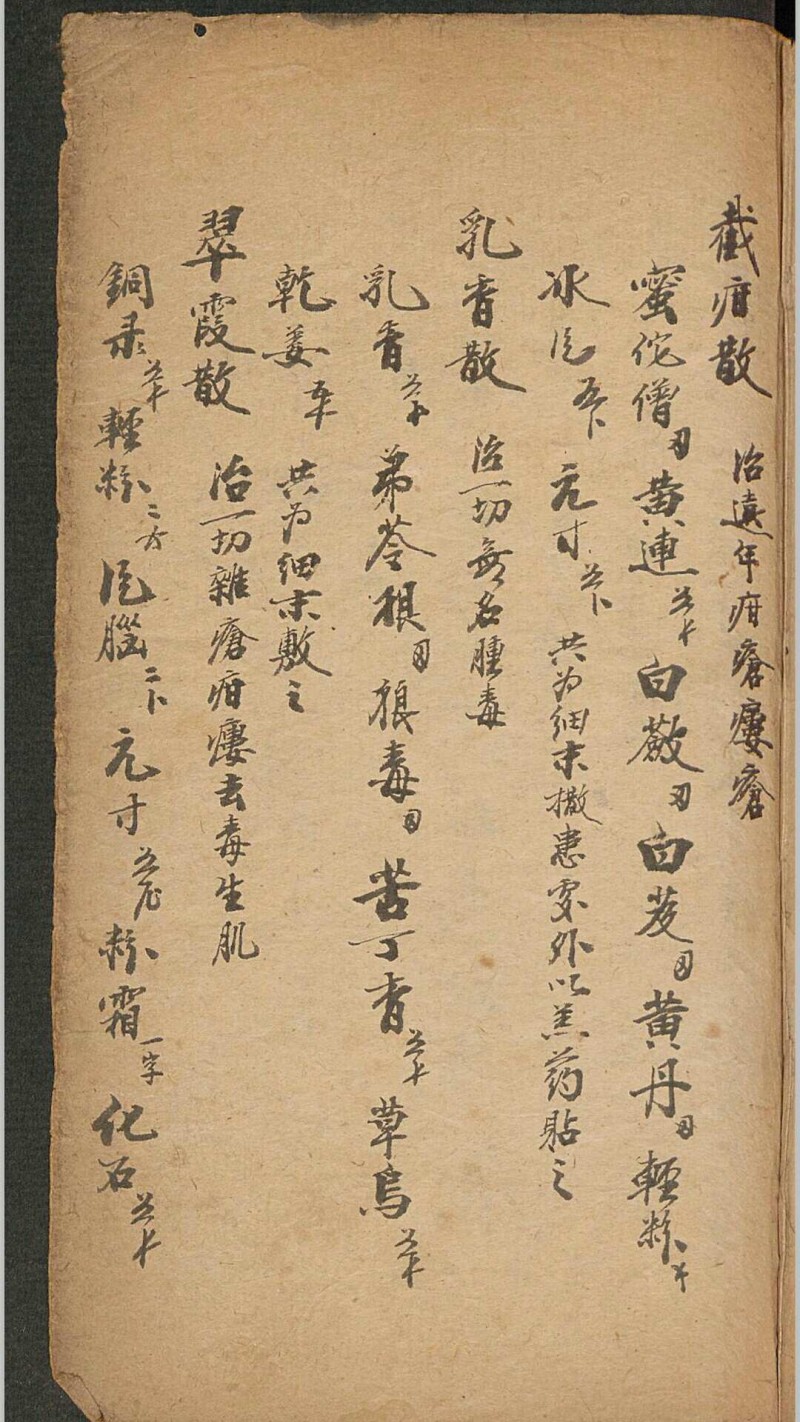 截疳散 治遠年疳瘡瘻瘡
蜜佗僧 黄連 白蘞 白芨 黄丹 輕粉
氷片 元寸 共为细末撒患處外以羔药貼之
乳香散 治一切無名腫毒
乳香 弟苓根 狼毒 苦丁香 草烏
乾姜 共为细末敷之
翠霞散 治一切雜瘡疳瘻去毒生肌
銅录 輕粉 片腦 元寸 粉霜一字 化石